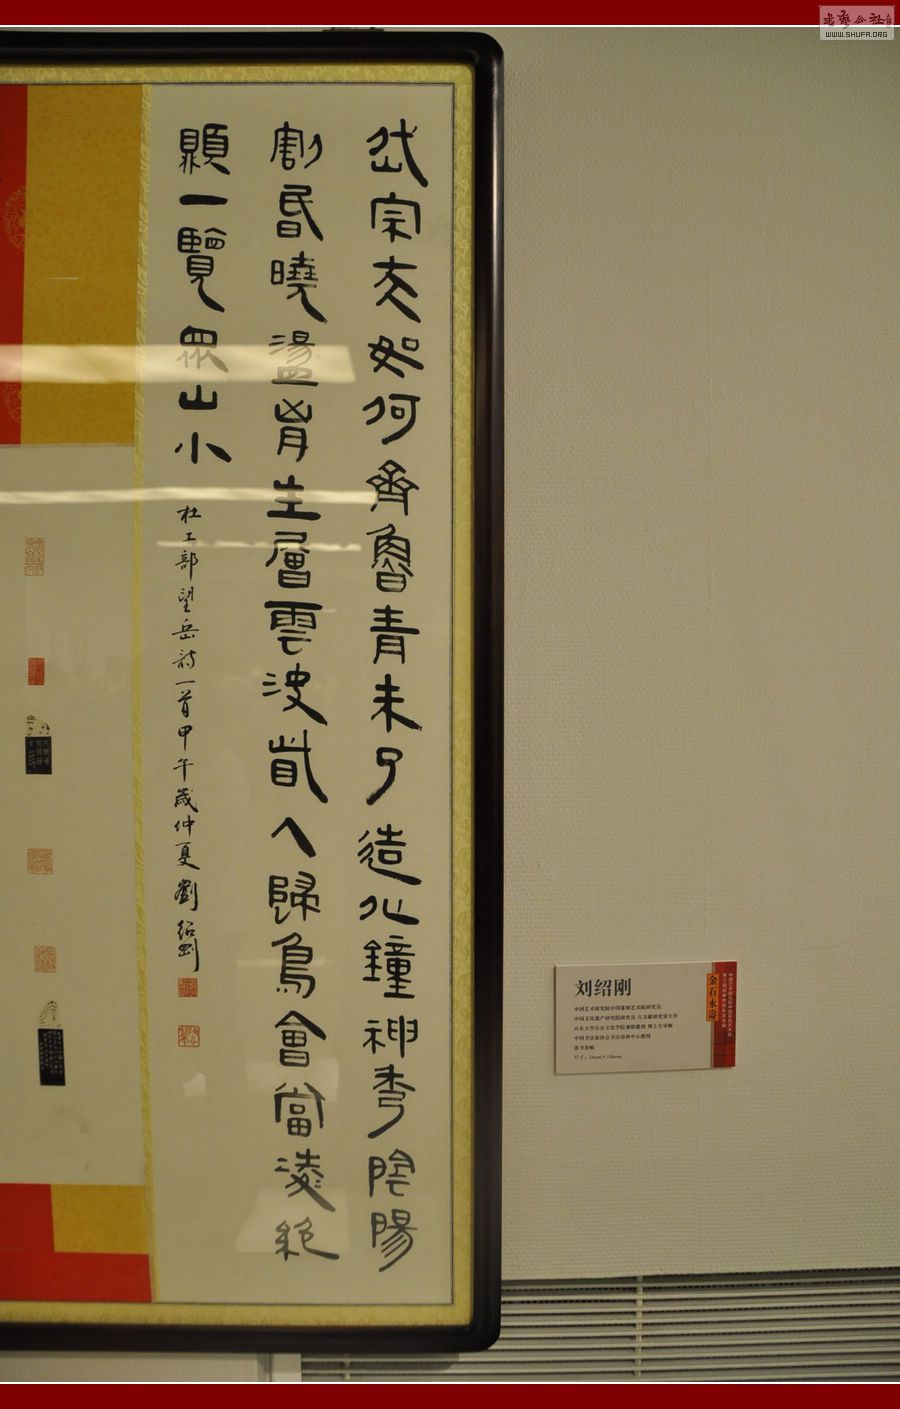 岱宗夫如何齊魯青未了造化鐘神秀陰陽
割昏曉盪胷生層雲決眥入歸鳥會當凌絕
顥一覽眾山小
杜工部望岳詩一首甲午歲仲夏劉紹剛
刘绍刚
中国艺术研究院中国篆刻艺术院研究员
中国文化遗产研究院研究员 古文献研究室主任
山东大学历史文化学院兼职教授 博士生导师
中国书法家协会书法培训中心教授
隶书条幅
尺寸：34cm×136cm
WWW.SHUFA.ORG